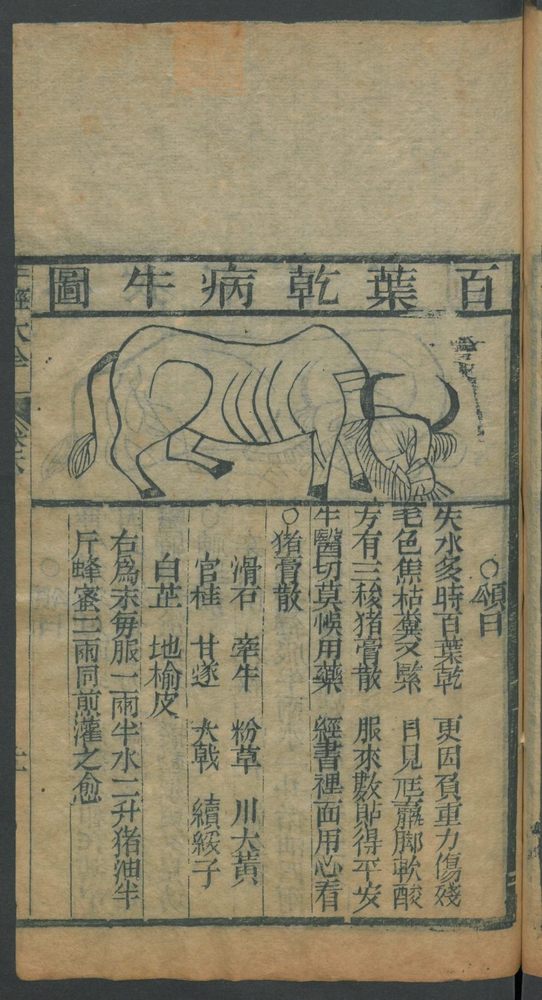 百葉乾病牛圖
○頌曰
失水多時百葉乾 更因負重力傷殘
毛色焦枯糞又緊 月見尫羸脚軟酸
方有三稜猪膏散 服來數貼得平安
牛醫切莫悞用藥 經書裡面用心看
○猪膏散
滑石 牽牛 粉草 川大黃
官桂 甘遂 大戟 續綏子
白芷 地榆皮
右爲末每服一兩半水二升猪油半
斤蜂蜜二兩同煎灌之愈
牛經大全
卷六
十一